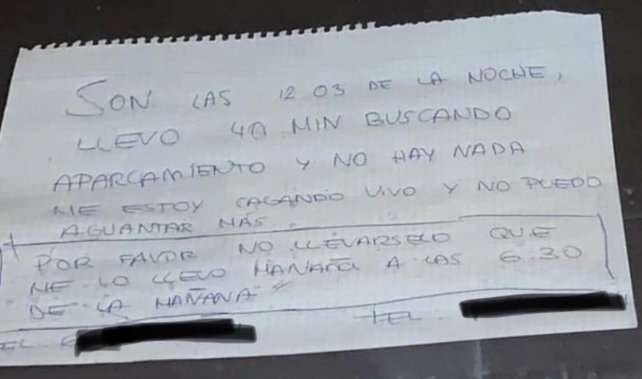 SON LAS 12 03 DE LA NOCHE,
LLEVO 40 MIN BUSCANDO
APARCAMIENTO Y NO HAY NADA
ME ESTOY CAGANDO VIVO Y NO PUEDO
AGUANTAR MAS.
POR FAVOR NO LLEVARSELO QUE
ME LO LLEVO MAÑANA A LAS 6:30
DE LA MAÑANA
TEL
TEL